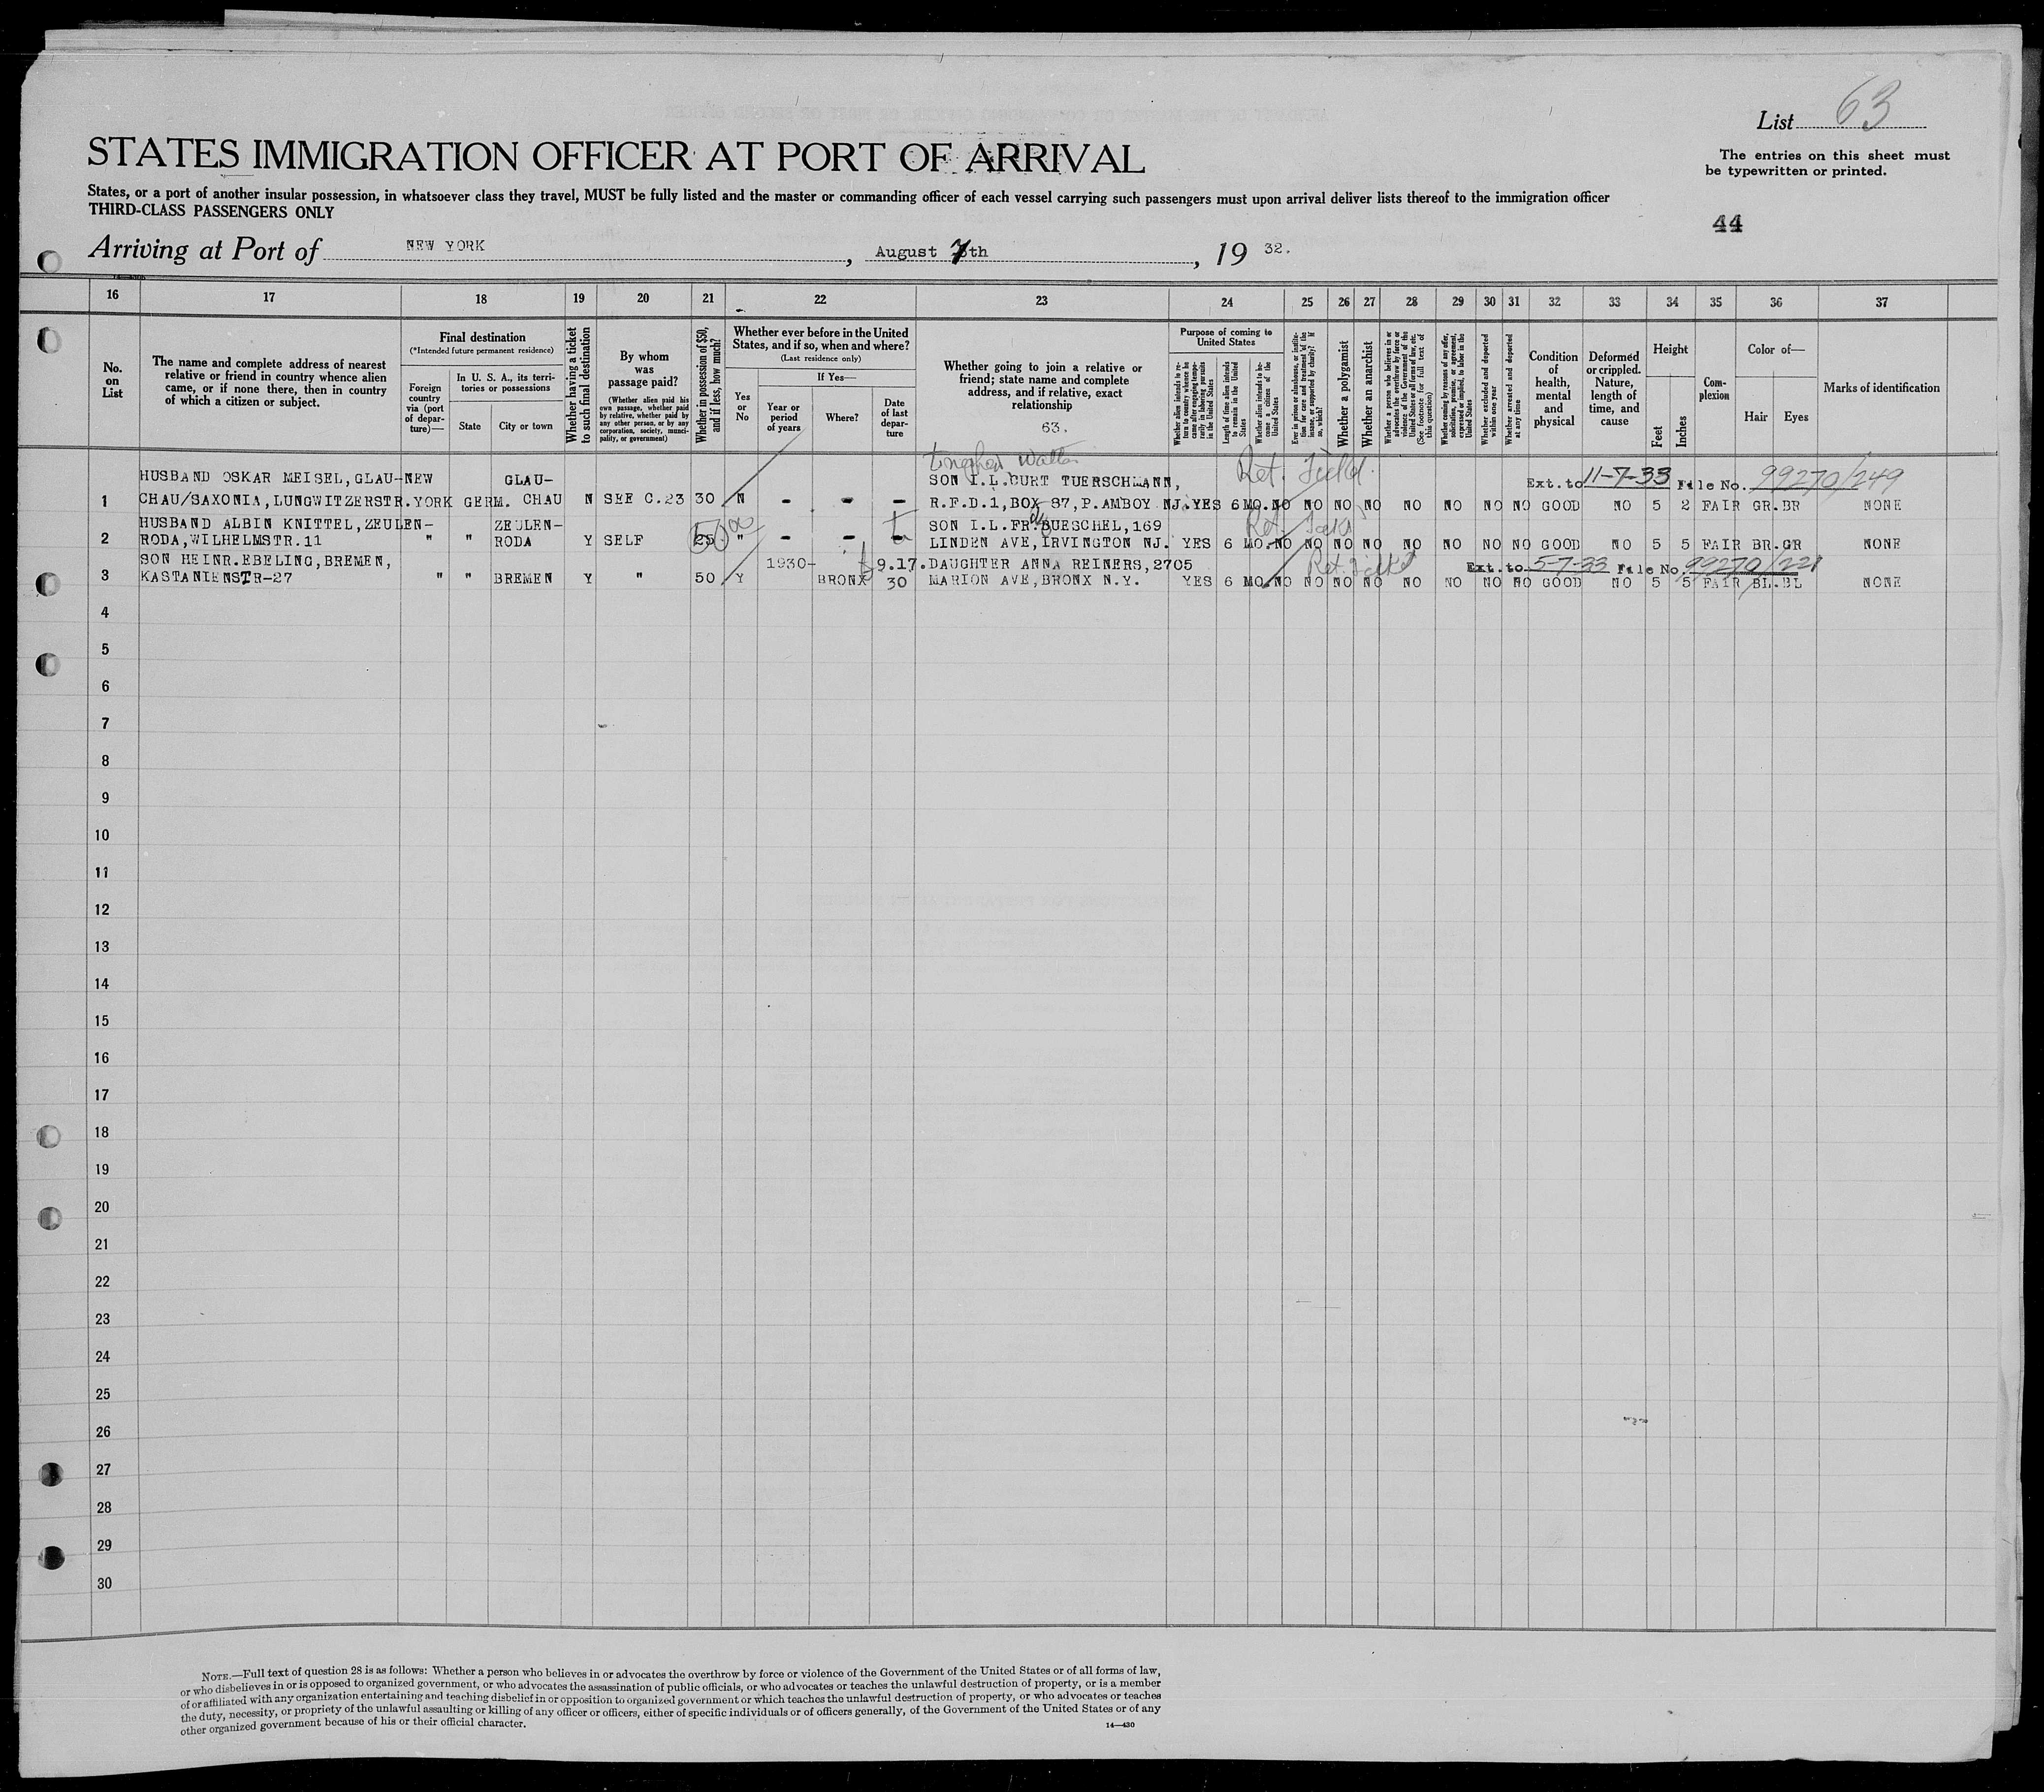 List 63
The entries on this sheet must
be typewritten or printed.
STATES IMMIGRATION OFFICER AT PORT OF ARRIVAL
States, or a port of another insular possession, in whatsoever class they travel, MUST be fully listed and the master or commanding officer of each vessel carrying such passengers must upon arrival deliver lists thereof to the immigration officer
THIRD-CLASS PASSENGERS ONLY
44
Arriving at Port of NEW YORK, August 7th, 19 32.
16 17 18 19 20 21 22 23 24 25 26 27 28 29 30 31 32 33 34 35 36 37
No. on List
The name and complete address of nearest
relative or friend in country whence alien
came, or if none there, then in country
of which a citizen or subject.
Final destination
(*Intended future permanent residence)
Foreign country via (port of departure)—
In U. S. A., its territories or possessions
State
City or town
Whether having a ticket to such final destination
By whom was passage paid?
(Whether alien paid his own passage, whether paid by relative, whether paid by any other person, or by any corporation, society, municipality, or government)
Whether in possession of $50, and if less, how much?
Whether ever before in the United
States, and if so, when and where?
(Last residence only)
Yes or No
If Yes—
Year or period of years
Where?
Date of last departure
Whether going to join a relative or
friend; state name and complete
address, and if relative, exact
relationship
63.
Purpose of coming to United States
Whether alien intends to return to country whence he came after engaging temporarily in laboring pursuits in the United States
Length of time alien intends to remain in the United States
Whether alien intends to become a citizen of the United States
Ever in prison or almshouse, or institution for care and treatment of the insane, or supported by charity? If so, which?
Whether a polygamist
Whether an anarchist
Whether a person who believes in or advocates the overthrow by force or violence of the Government of the United States or all forms of law, etc. (See footnote for full text of this question)
Whether coming by reasons of any offer, solicitation, promise, or agreement, expressed or implied, to labor in the United States
Whether excluded and deported within one year
Whether arrested and deported at any time
Condition of health, mental and physical
Deformed or crippled. Nature, length of time, and cause
Height
Feet
Inches
Complexion
Color of—
Hair
Eyes
Marks of identification
HUSBAND OSKAR MEISEL, GLAU- NEW GLAU- SON I.L. CURT TUERSCHMANN, Ret. Field. Ext. to 11-7-33 File No. 99270/249
1 CHAU/SAXONIA, LUNGWITZERSTR. YORK GERM. CHAU N SEE C.23 30 N - - - R.F.D.1, BOX 87, P. AMBOY NJ. YES 6 MO. NO NO NO NO NO NO NO NO GOOD NO 5 2 FAIR GR. BR NONE
HUSBAND ALBIN KNITTEL, ZEULEN- ZEULEN- 50 00 SON I.L. FR. BUESCHEL, 169
2 RODA, WILHELMSTR. 11 " " RODA Y SELF 25 " - - - LINDEN AVE, IRVINGTON NJ. YES 6 MO. NO NO NO NO NO NO NO NO GOOD NO 5 5 FAIR BR. GR NONE
SON HEINR. EBELING, BREMEN, 1930- 9.17. DAUGHTER ANNA REINERS, 2705 Ext. to 5-7-33 File No. 99270/221
3 KASTANIENSTR-27 " " BREMEN Y " 50 Y BRONX 30 MARION AVE, BRONX N.Y. YES 6 MO. NO NO NO NO NO NO NO NO GOOD NO 5 5 FAIR BL. BL NONE
4
5
6
7
8
9
10
11
12
13
14
15
16
17
18
19
20
21
22
23
24
25
26
27
28
29
30
NOTE.—Full text of question 28 is as follows: Whether a person who believes in or advocates the overthrow by force or violence of the Government of the United States or of all forms of law,
or who disbelieves in or is opposed to organized government, or who advocates the assassination of public officials, or who advocates or teaches the unlawful destruction of property, or is a member
of or affiliated with any organization entertaining and teaching disbelief in or opposition to organized government or which teaches the unlawful destruction of property, or who advocates or teaches
the duty, necessity, or propriety of the unlawful assaulting or killing of any officer or officers, either of specific individuals or of officers generally, of the Government of the United States or of any
other organized government because of his or their official character.
14—430